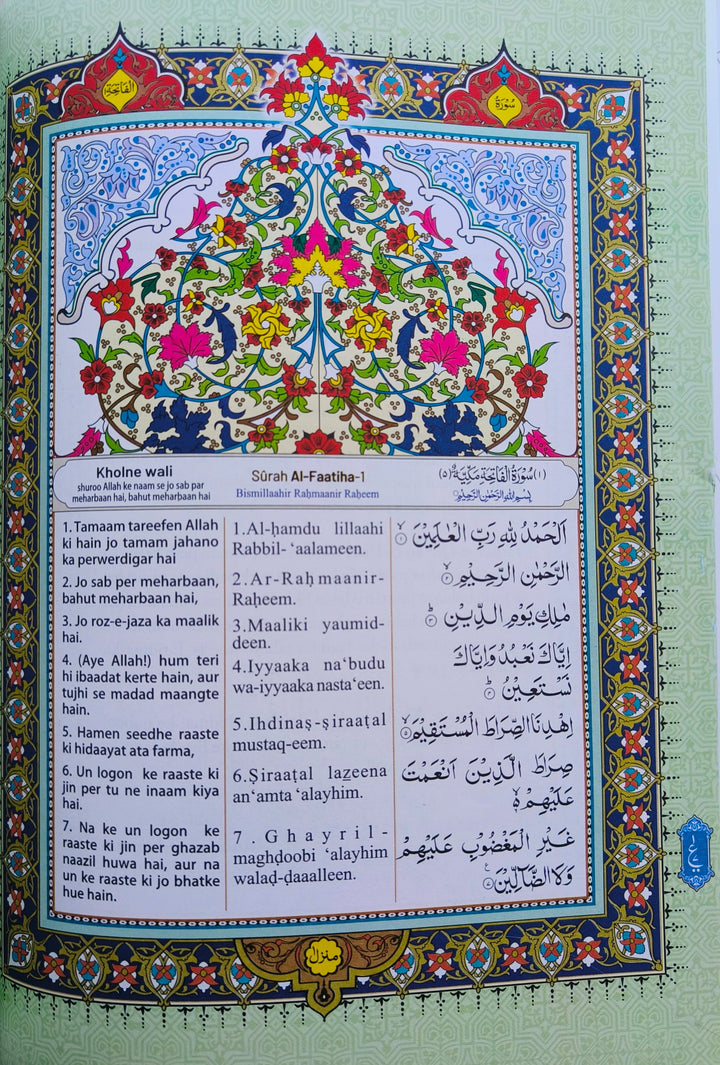 الفاتحة
سورة
Kholne wali
shuroo Allah ke naam se jo sab par
meharbaan hai, bahut meharbaan hai
Sûrah Al-Faatiha-1
Bismillaahir Raḥmaanir Raḥeem
(١) سُوْرَةُ الْفَاتِحَةِ مَكِّيَّةٌ (٥)
بِسْمِ اللهِ الرَّحْمٰنِ الرَّحِيْمِ
1. Tamaam tareefen Allah
ki hain jo tamam jahano
ka perwerdigar hai
2. Jo sab per meharbaan,
bahut meharbaan hai,
3. Jo roz-e-jaza ka maalik
hai.
4. (Aye Allah!) hum teri
hi ibaadat kerte hain, aur
tujhi se madad maangte
hain.
5. Hamen seedhe raaste
ki hidaayat ata farma,
6. Un logon ke raaste ki
jin per tu ne inaam kiya
hai.
7. Na ke un logon ke
raaste ki jin per ghazab
naazil huwa hai, aur na
un ke raaste ki jo bhatke
hue hain.
1.Al-ḥamdu lillaahi
Rabbil- ‘aalameen.
2.Ar-Raḥmaanir-
Raḥeem.
3.Maaliki yaumid-
deen.
4.Iyyaaka na‘budu
wa-iyyaaka nasta‘een.
5.Ihdinaṣ-ṣiraaṭal
mustaq-eem.
6.Ṣiraaṭal lazeena
an‘amta ‘alayhim.
7.Ghayril-
maghḍoobi ‘alayhim
walaḍ-ḍaaalleen.
اَلْحَمْدُ لِلّٰهِ رَبِّ الْعٰلَمِيْنَ ١
الرَّحْمٰنِ الرَّحِيْمِ ٢
مٰلِكِ يَوْمِ الدِّيْنِ ٣
اِيَّاكَ نَعْبُدُ وَاِيَّاكَ
نَسْتَعِيْنُ ٤
اِهْدِنَا الصِّرَاطَ الْمُسْتَقِيْمَ ٥
صِرَاطَ الَّذِيْنَ اَنْعَمْتَ
عَلَيْهِمْ ٦
غَيْرِ الْمَغْضُوْبِ عَلَيْهِمْ
وَلَا الضَّآلِّيْنَ ٧
منزل